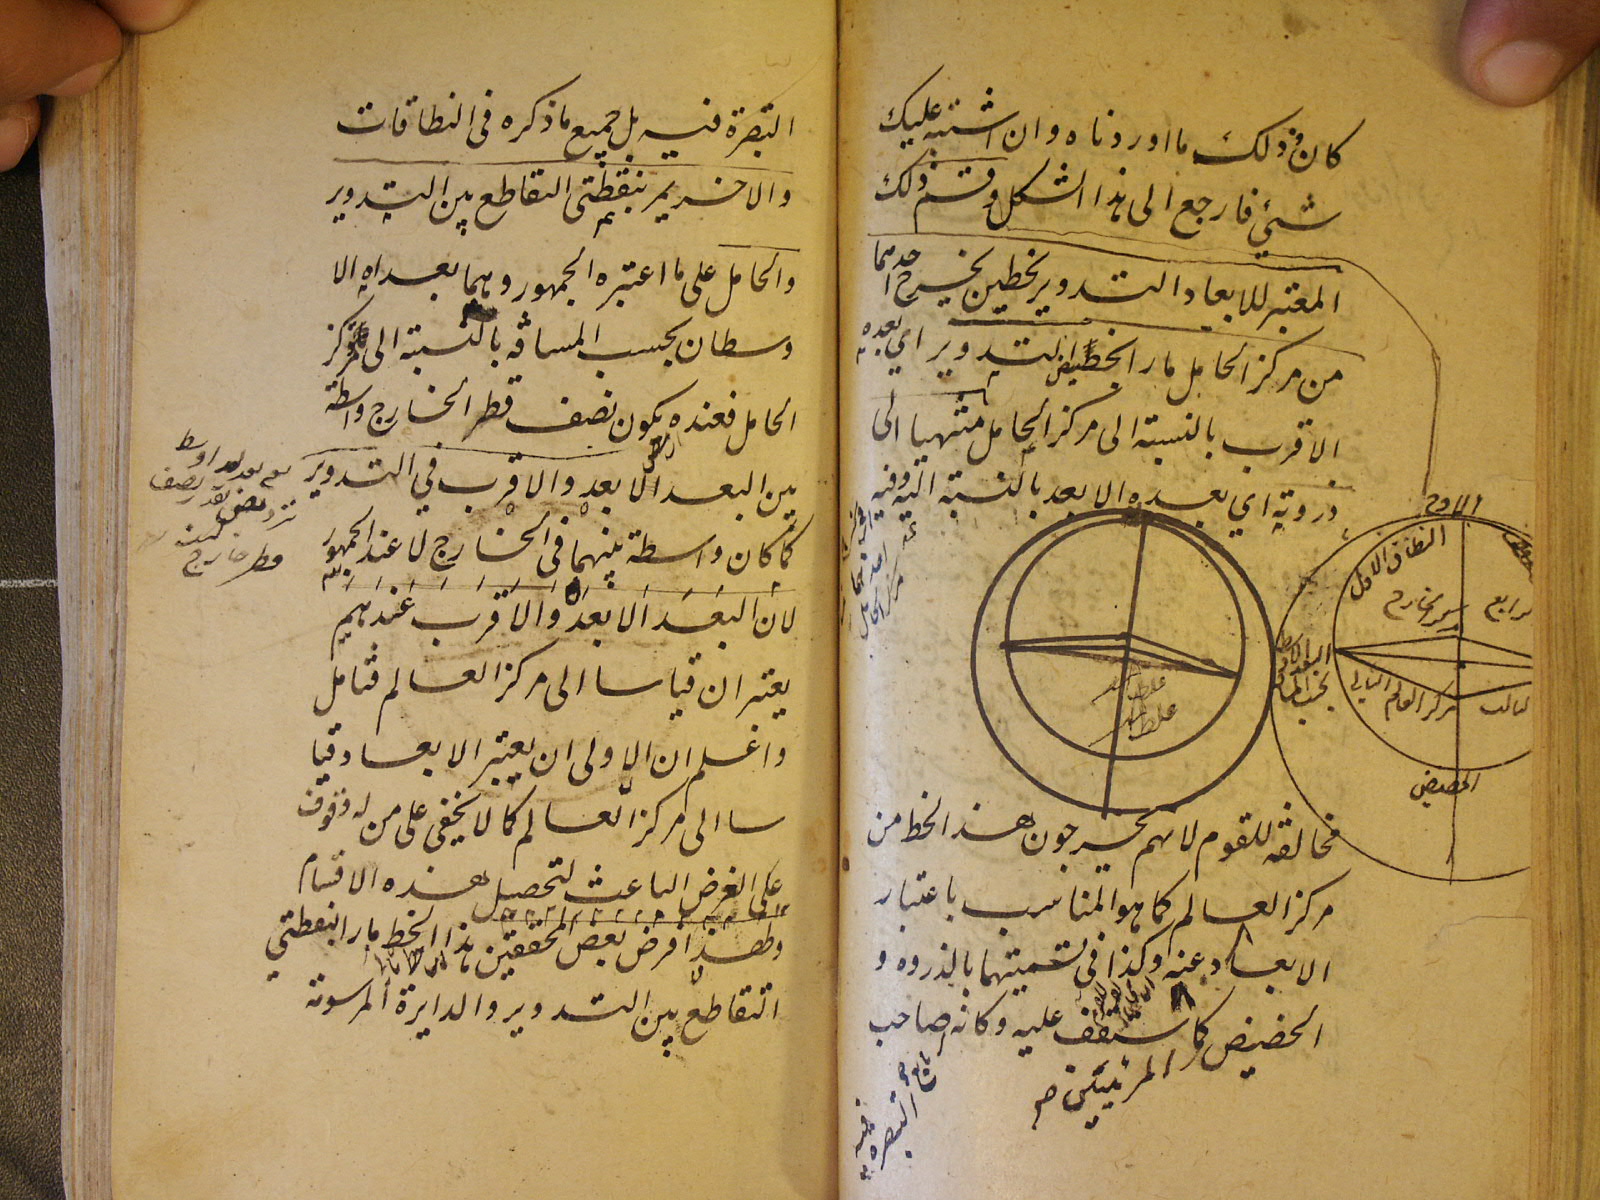 كان فى ذلك ما اوردناه وان اشتبه عليك
شئ فارجع الى هذا الشكل وقسم ذلك
المعتبر للابعاد التدوير بخطين يخرج احدهما
من مركز الحامل مارا بحضيض التدوير اي بعده
الاقرب بالنسبة الى مركز الحامل منتهيا الى
ذروته اي بعده الابعد بالنسبة اليه وفيه
الاوج
النطاق الاول
مركز الخارج
رابع
مركز العالم
الثالث
الحضيض
غلط
غلط
مخالفة للقوم لانهم يخرجون هذا الخط من
مركز العالم كما هو المناسب باعتبار
الابعاد عنه وكذا فى تسميتهما بالذروه و
الحضيض كما ستقف عليه وكانه صاحب
المرئيتين صح
تابع
التبصره
مركز الحامل
التبصرة فيه بل جميع ما ذكره فى النطاقات
والاخر يمر بنقطتى التقاطع بين التدوير
والحامل على ما اعتبره الجمهور وهما بعداه الا
وسطان بحسب المسافة بالنسبة الى مركز
الحامل فعنده يكون نصف قطر الخارج واسطة
بين البعد الابعد والاقرب في التدوير
كما كان واسطة بينهما فى الخارج لا عند الجمهور
لان البعد الابعد والاقرب عندهم
يعتبران قياسا الى مركز العالم فتامل
واعلم ان الاولى ان يعتبر الابعاد قيا
سا الى مركز العالم كما لا يخفى على من له وقوف
على الغرض الباعث لتحصيل هذه الاقسام
ولهذا فرض بعض المحققين هذا الخط مارا بنقطتي
التقاطع بين التدوير والدايرة المرسومة
قطر خارج